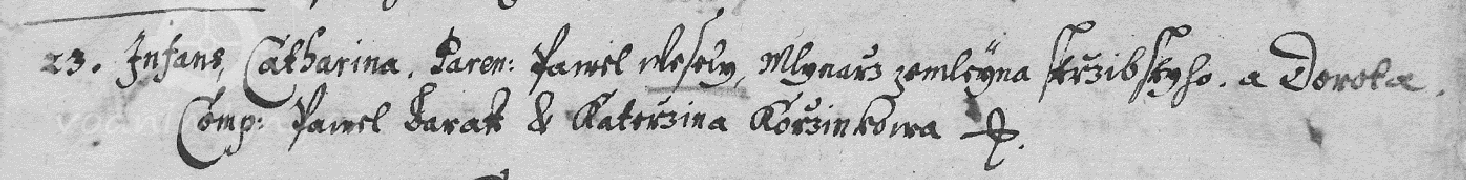 23. Infans, Catharina. Paren: Pawel Wesely, Mlynarz zemleyna skrzibskyho. a Dorota.
Comp: Pawel Barak & Katerzina Korzinkowa